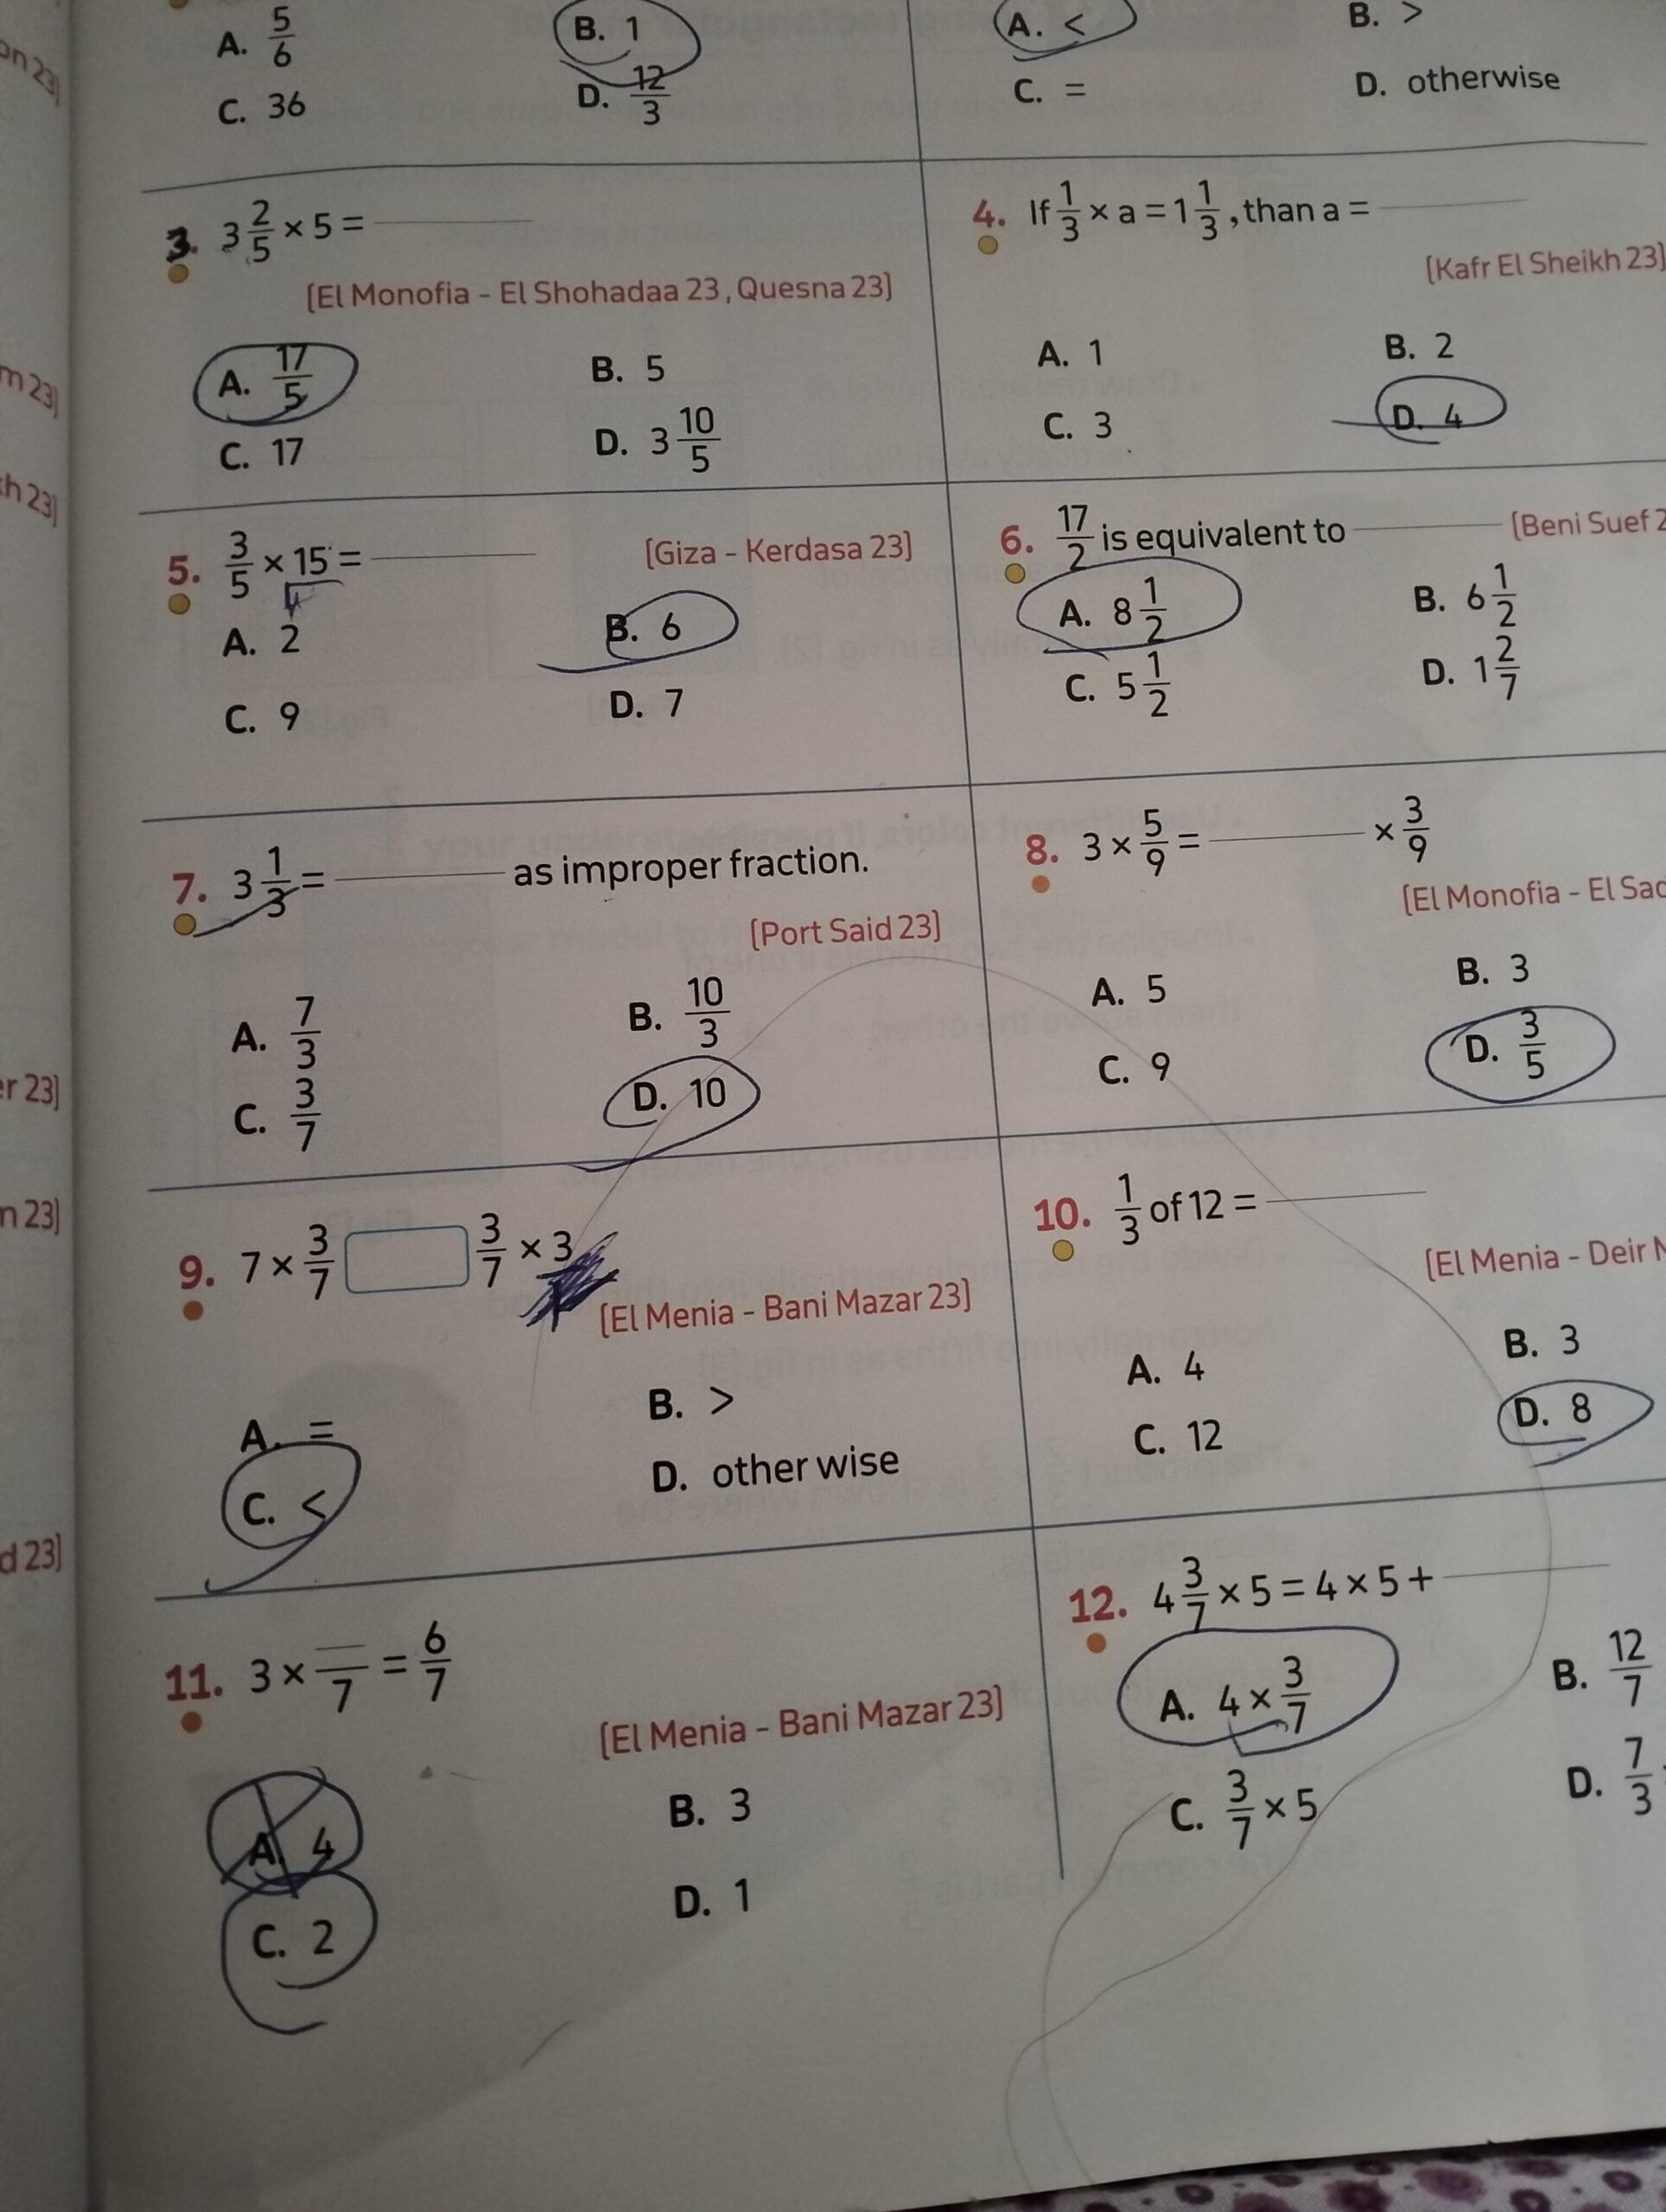 on 23]
m 23]
h 23]
r 23]
n 23]
d 23]
A. 5/6
B. 1
C. 36
D. 12/3
A. <
B. >
C. =
D. otherwise
3. 3 2/5 × 5 =
[El Monofia - El Shohadaa 23, Quesna 23]
A. 17/5
B. 5
C. 17
D. 3 10/5
4. If 1/3 × a = 1 1/3, than a =
[Kafr El Sheikh 23]
A. 1
B. 2
C. 3
D. 4
5. 3/5 × 15 =
[Giza - Kerdasa 23]
A. 2
B. 6
C. 9
D. 7
6. 17/2 is equivalent to
[Beni Suef 2
A. 8 1/2
B. 6 1/2
C. 5 1/2
D. 1 2/7
7. 3 1/3 = as improper fraction.
[Port Said 23]
A. 7/3
B. 10/3
C. 3/7
D. 10
8. 3 × 5/9 = × 3/9
[El Monofia - El Sad
A. 5
B. 3
C. 9
D. 3/5
9. 7 × 3/7 3/7 × 3
[El Menia - Bani Mazar 23]
A. =
B. >
C. <
D. other wise
10. 1/3 of 12 =
[El Menia - Deir M
A. 4
B. 3
C. 12
D. 8
11. 3 × /7 = 6/7
[El Menia - Bani Mazar 23]
A. 4
B. 3
C. 2
D. 1
12. 4 3/7 × 5 = 4 × 5 +
A. 4 × 3/7
B. 12/7
C. 3/7 × 5
D. 7/3